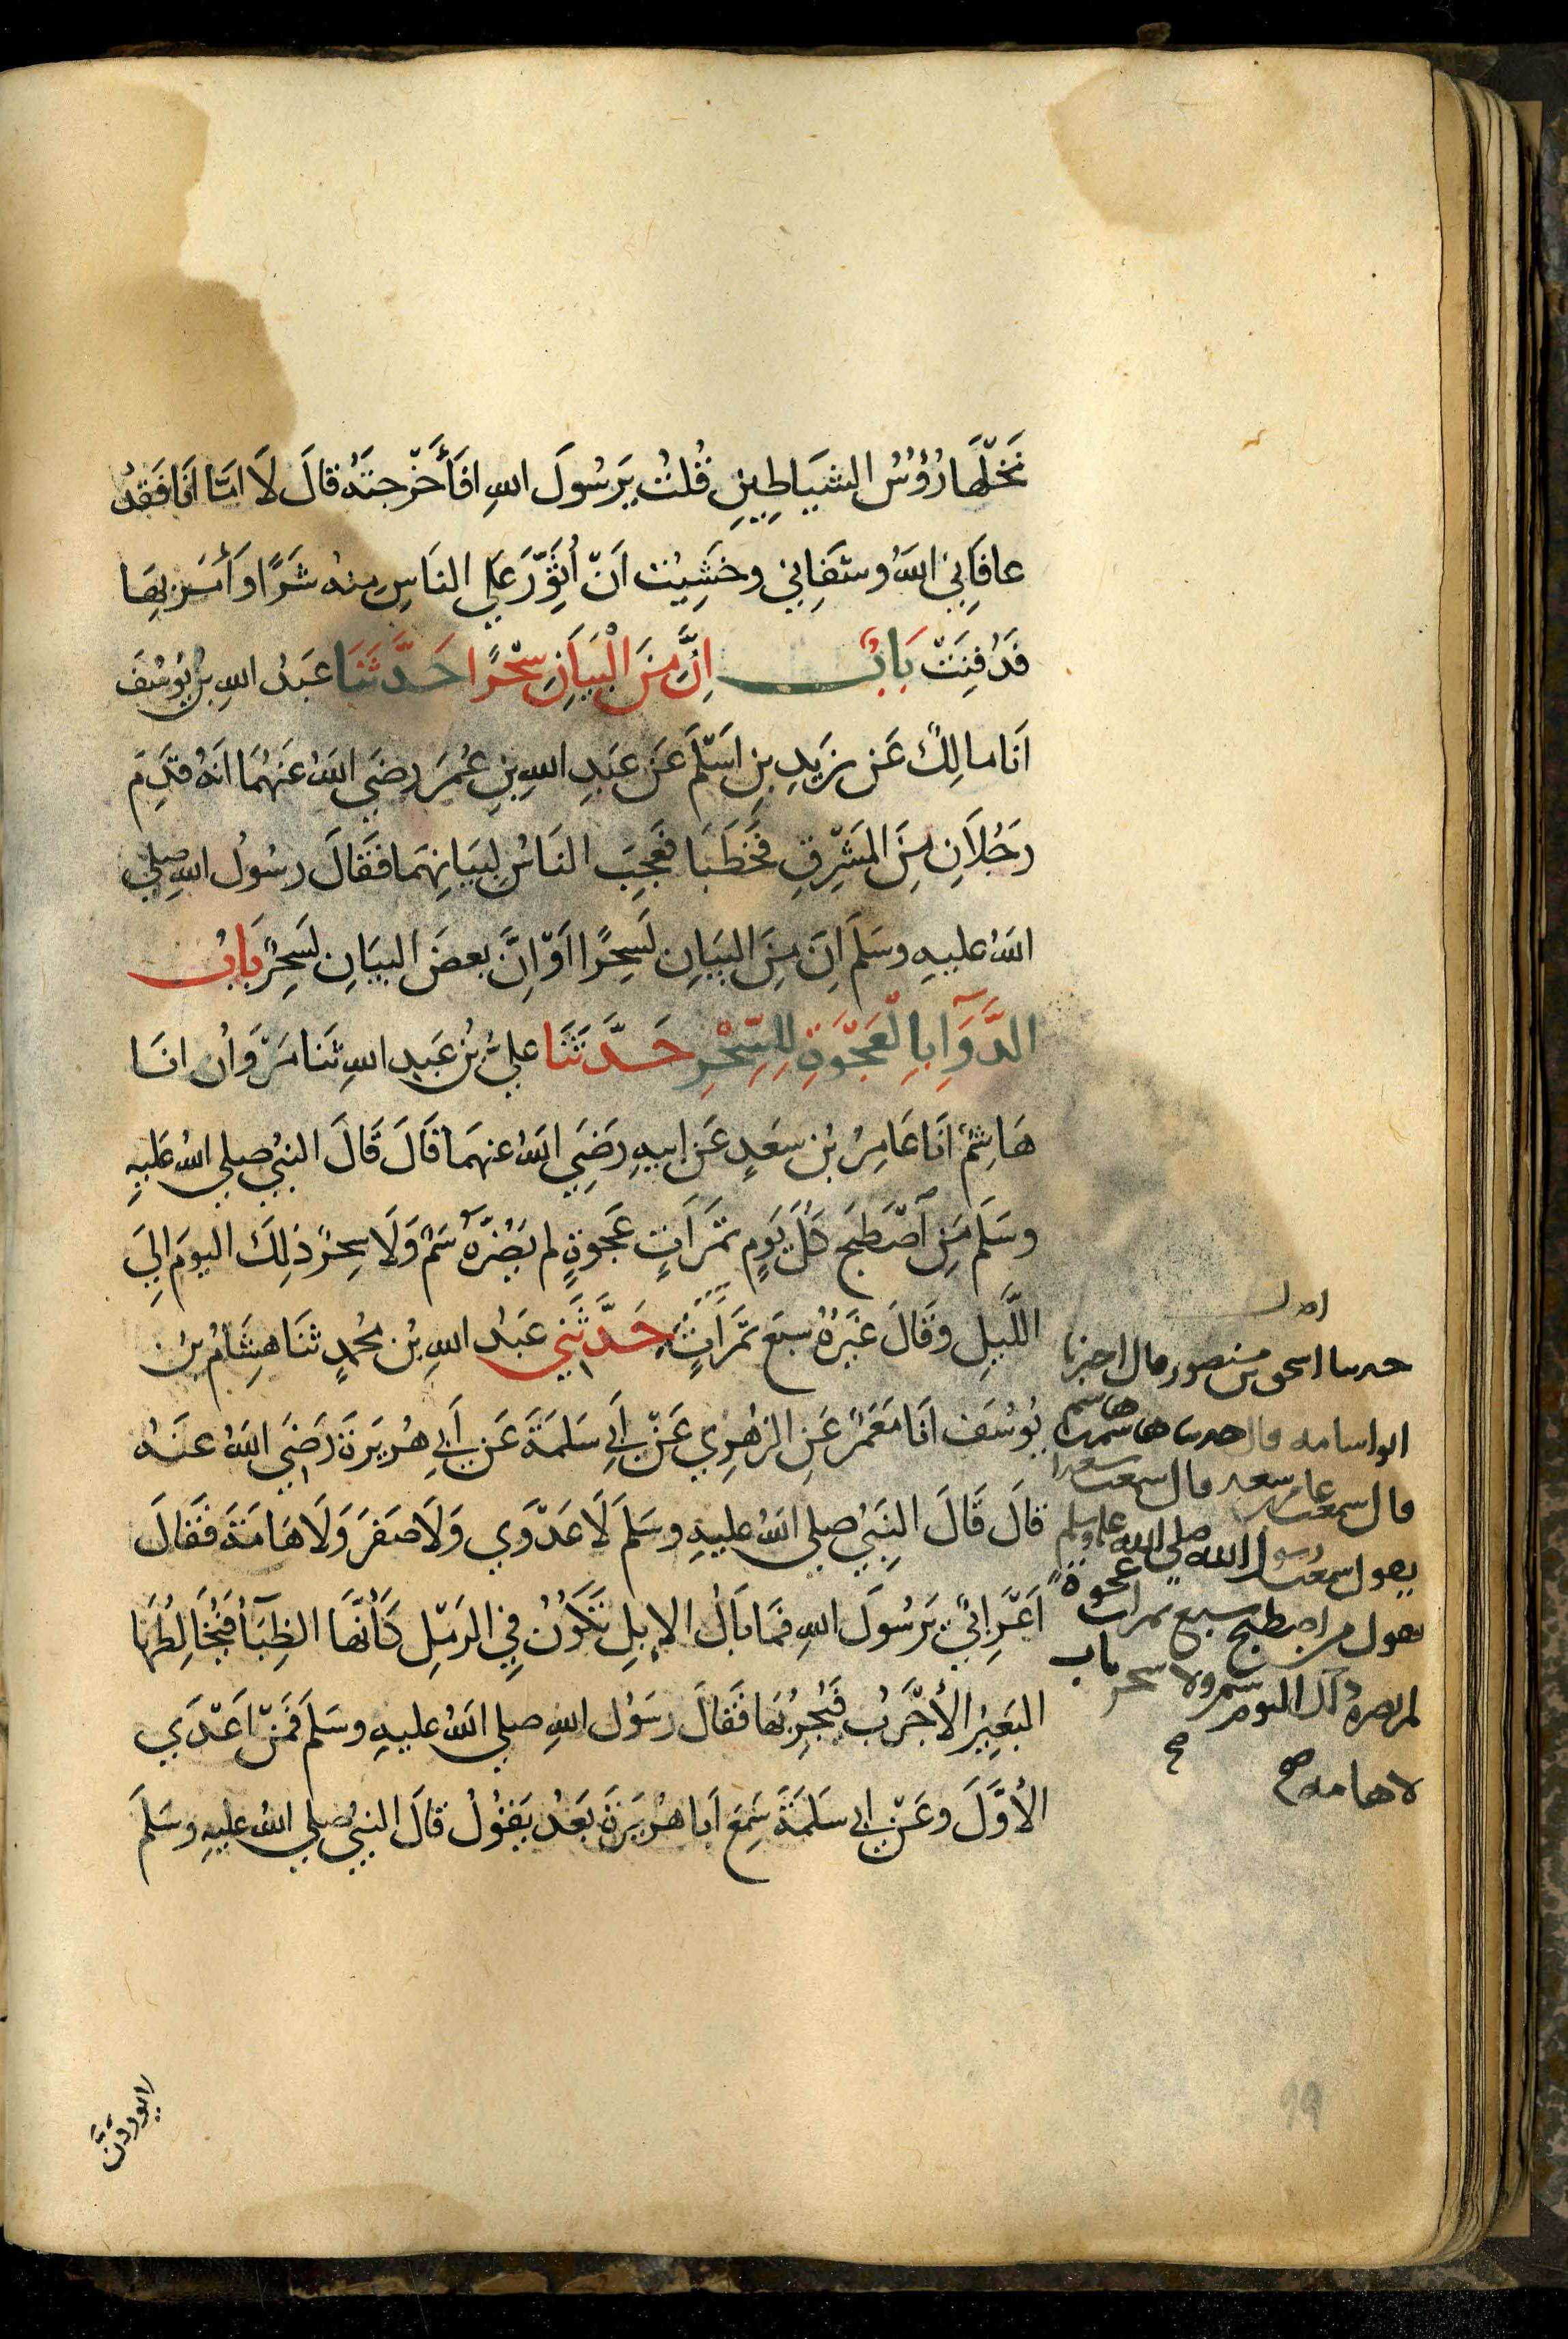 نَخْلِهَا رُؤُسُ الشيَاطِينِ قُلتُ يَرَسُولَ اللهِ افَأَخْرَجتَهُ قَالَ لَا امَّا انَا فَقَدْ
عافَانِي اللهُ وشَفَانِي وخَشِيْت اَنْ أُثَوِّرَ عَلي الناسِ منهُ شَرًّا وَأَمَرَ بِهَا
فَدُفِنَتْ بَابٌ اِنَّ مِنَ الْبَيَانِ سِحْرًا حَدَّثَنَا عَبدُ اللهِ بنُ يُوسُفَ
اَنَا مالِكٌ عَن زيَدِ بنِ اَسْلَمَ عَن عَبَدِ اللهِ بنِ عُمَرَ رضَي اللهُ عَنهُمَا انهُ قدِمَ
رَجُلَانِ مِنَ المَشْرِقِ فَخَطَبَا فعَجِبَ الناسُ لِبيَانِهِمَا فَقَالَ رسُولُ اللهِ صلي
اللهُ عليهِ وسَلَمَ اِنَ مِنَ البَيَانِ لَسِحْرًا اَوْ اِنَّ بعضَ البيَانِ لَسِحْرٌ بَابُ
الدَّوَآ بِالْعَجْوَةِ لِلسِّحْرِ حَدَّثَنَا عليُ بنُ عَبدِ اللهِ ثنَا مَرْوَانُ انا
هَاشِمٌ انَا عَامِرُ بنُ سعَدٍ عَن ابيهِ رَضِيَ اللهُ عنهُمَا قَالَ قَالَ النبيُّ صلي اللهُ عَليهِ
وسَلَم مَنِ اصْطَبَحَ كُلَّ يَوَمٍ تمَرَاتٍ عَجوَةٍ لم يضُرَّهُ سَمٌ وَلَا سِحرٌ ذلِكَ اليومَ اِلَي
اللَّيلِ وقَالَ غيَرُهُ سبعَ تمَرَاتٍ حَدَّثَنِي عَبدُ اللهِ بن مُحمدٍ ثنَا هِشَامُ بنُ
يُوسُف انَا مَعَمَرٌ عَنِ الزهْرِي عَنْ اَبي سَلمَةَ عَن اَبي هُريَرَةَ رَضَي اللهُ عنهُ
قالَ قَالَ النَبيُّ صلي اللهُ عليهِ وسَلَمَ لَا عَدْوَي وَلَا صَفَرَ وَلَا هَامَةَ فَقَالَ
اَعْرَابيٌ يَرَسُولَ اللهِ فمَا بَالُ الاِبلِ تَكُونُ فِي الرَمْلِ كَأَنَّهَا الظِبَآُ فَيُخَالِطُهَا
البَعِيرُ الأَجْرَبُ فَيُجْرِبُهَا فَقَالَ رسَوُل اللهِ صلي اللهُ عليهِ وسَلَمَ فمَنْ اَعْدَي
الأوَّلَ وعَنْ ابي سَلمَةَ سَمِعَ اَبا هُريَرَةَ بَعَدُ يَقُولُ قَالَ النبيُّ صلي اللهُ عليهِ وسَلَمَ
حدسا اسحق بن منصور قال اخبرنا
ابو اسامه قال حدسا هاشم بن هاشم
قال سمعت عامر بن سعد قال سمعت سعدا
يقول سمعت رسول الله صلى الله عليه وسلم
يقول من اصطبح سبع تمرات عجوة
لم يضره ذلك اليوم سم ولا سحر باب
لا هامه صح
لا يوردنَّ
99